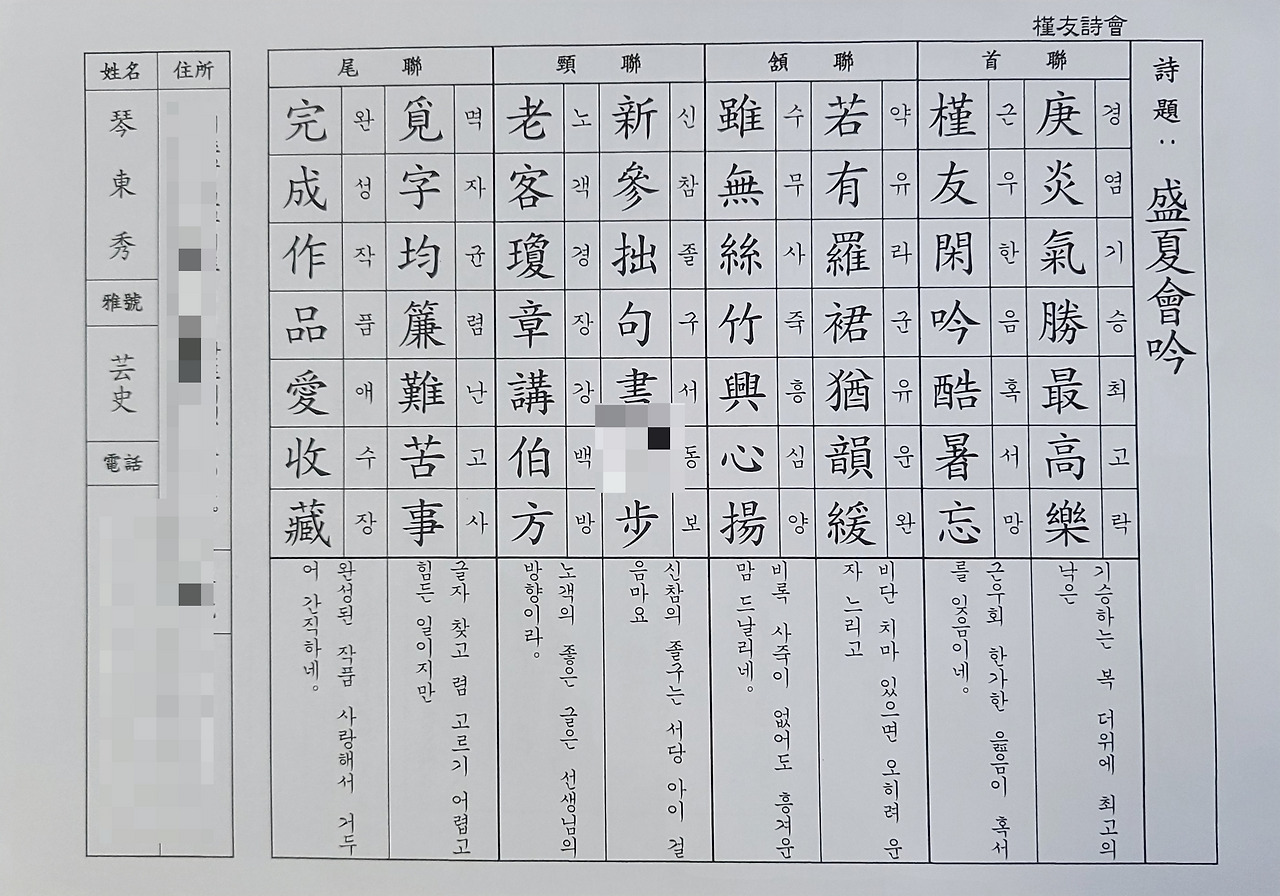 槿友詩會
詩題: 盛夏會吟
首聯
경염기승최고락
庚炎氣勝最高樂
기승하는 복 더위에 최고의
낙은
근우한음혹서망
槿友閑吟酷暑忘
근우회 한가한 읊음이 혹서
를 잊음이네。
頷聯
약유라군유운완
若有羅裙猶韻緩
비단 치마 있으면 오히려 운
자 느리고
수무사죽흥심양
雖無絲竹興心揚
비록 사죽이 없어도 흥겨운
맘 드날리네。
頸聯
신참졸구서동보
新參拙句書步
신참의 졸구는 서당 아이 걸
음마요
노객경장강백방
老客瓊章講伯方
노객의 좋은 글은 선생님의
방향이라。
尾聯
멱자균렴난고사
覓字均簾難苦事
글자 찾고 렴 고르기 어렵고
힘든 일이지만
완성작품애수장
完成作品愛收藏
완성된 작품 사랑해서 거두
어 간직하네。
住所
姓名
琴東秀
雅號
芸史
電話